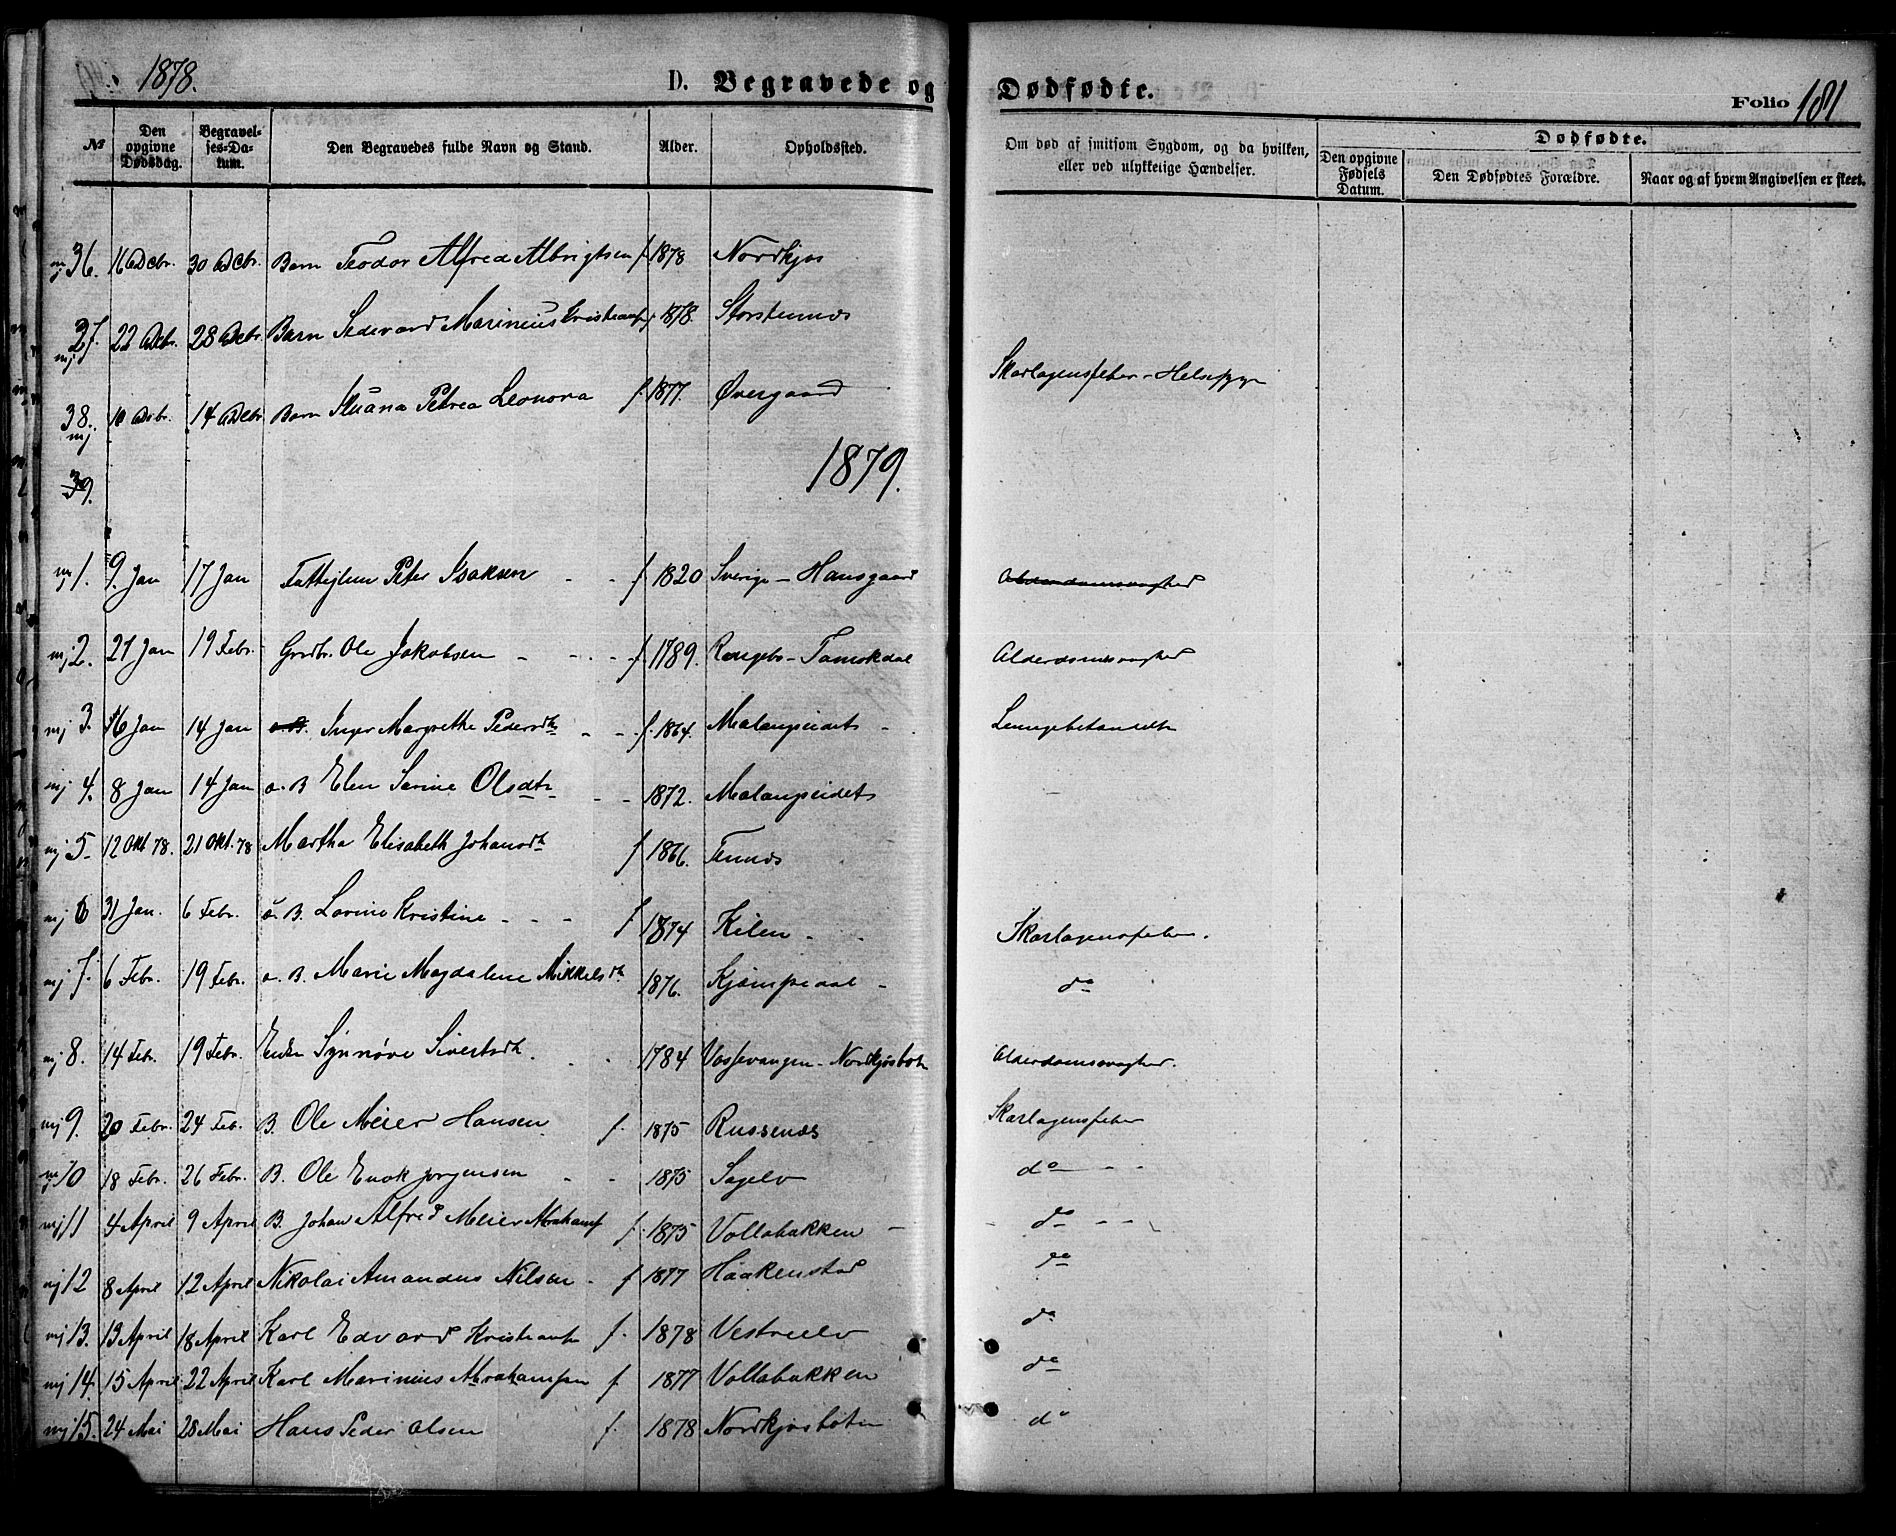 1878.
D. Begravede og Dødfødte.
Folio 181
№ Den opgivne Dødsdag. Begravelses-Datum. Den Begravedes fulde Navn og Stand. Alder. Opholdssted. Om død af smitsom Sygdom, og da hvilken, eller ved ulykkelige Hændelser. Dødfødte. Den opgivne Fødsels Datum. Den Dødfødtes Forældre. Naar og af hvem Angivelsen er skeet.
36. 16 Dcbr. 30 Dcbr. Barn Teodor Alfred Albrigtsen f. 1878 Nordkjos
37. 22 Dcbr. 28 Dcbr. Barn Marinius 1878. Storstennes
38. Dcbr. 14 Dcbr Barn Petrea Leonora f. 1877. Øvergaard Skarlagensfeber -
39.
1879.
1. 9. Jan 17 Jan Peter Isaksen f 1820 Sverige - Hansgaard Alderdomsvaghed
mj 2. 27 Jan 19 Febr. Grdbr. Ole Jakobsen f. 1789. Alderdomsvaghed
mj 3. 16 Jan 14 Jan Inger Margrethe f. 1864. Malangseidet
mj 4. 8 Jan 14 Jan a. B Elen Sarine Olsdtr 1872. Malangseidet
mj 5. 12 Okt 78. 21 Okt. 78 Martha Elisabeth f 1866. Tennes
mj 6 31 Jan. 6 Febr. B. Lorine Kristine f 1874 Kilen Skarlagensfeber.
mj 7. 6 Febr. 19 Febr. a. B. Marie Magdalene Mikkelsdt. 1876. do
mj 8. 14 Febr. 19 Febr. Enke Synnøve 1784 Vossevangen - Nordkjosbotn Alderdomsvaghed.
mj 9. 20 Febr. 24 Feb. B. Ole Meier Hansen f. 1875 Russenæs Skarlagensfeber
mj 10 18 Febr. 26 Febr. B. Ole Enok Jørgensen 1875 Sagelv do
mj 11 4 April 9 April B. Johan Alfred Meier Abrahams f. 1875 Vollabakken do
mj 12 8 April 12 April Nikolai Amandus Nilsen f 1877 Haakenstad do
mj 13. 13 April 18 April Karl Edvard f. 1878 Vestreelv do
mj 14. 15 April 22 April Karl Marinius Abrahamsen f 1877 Vollabakken do
mj 15. 24 Mai 28 Mai Hans Peder Olsen f. 1878 Nordkjosboten do